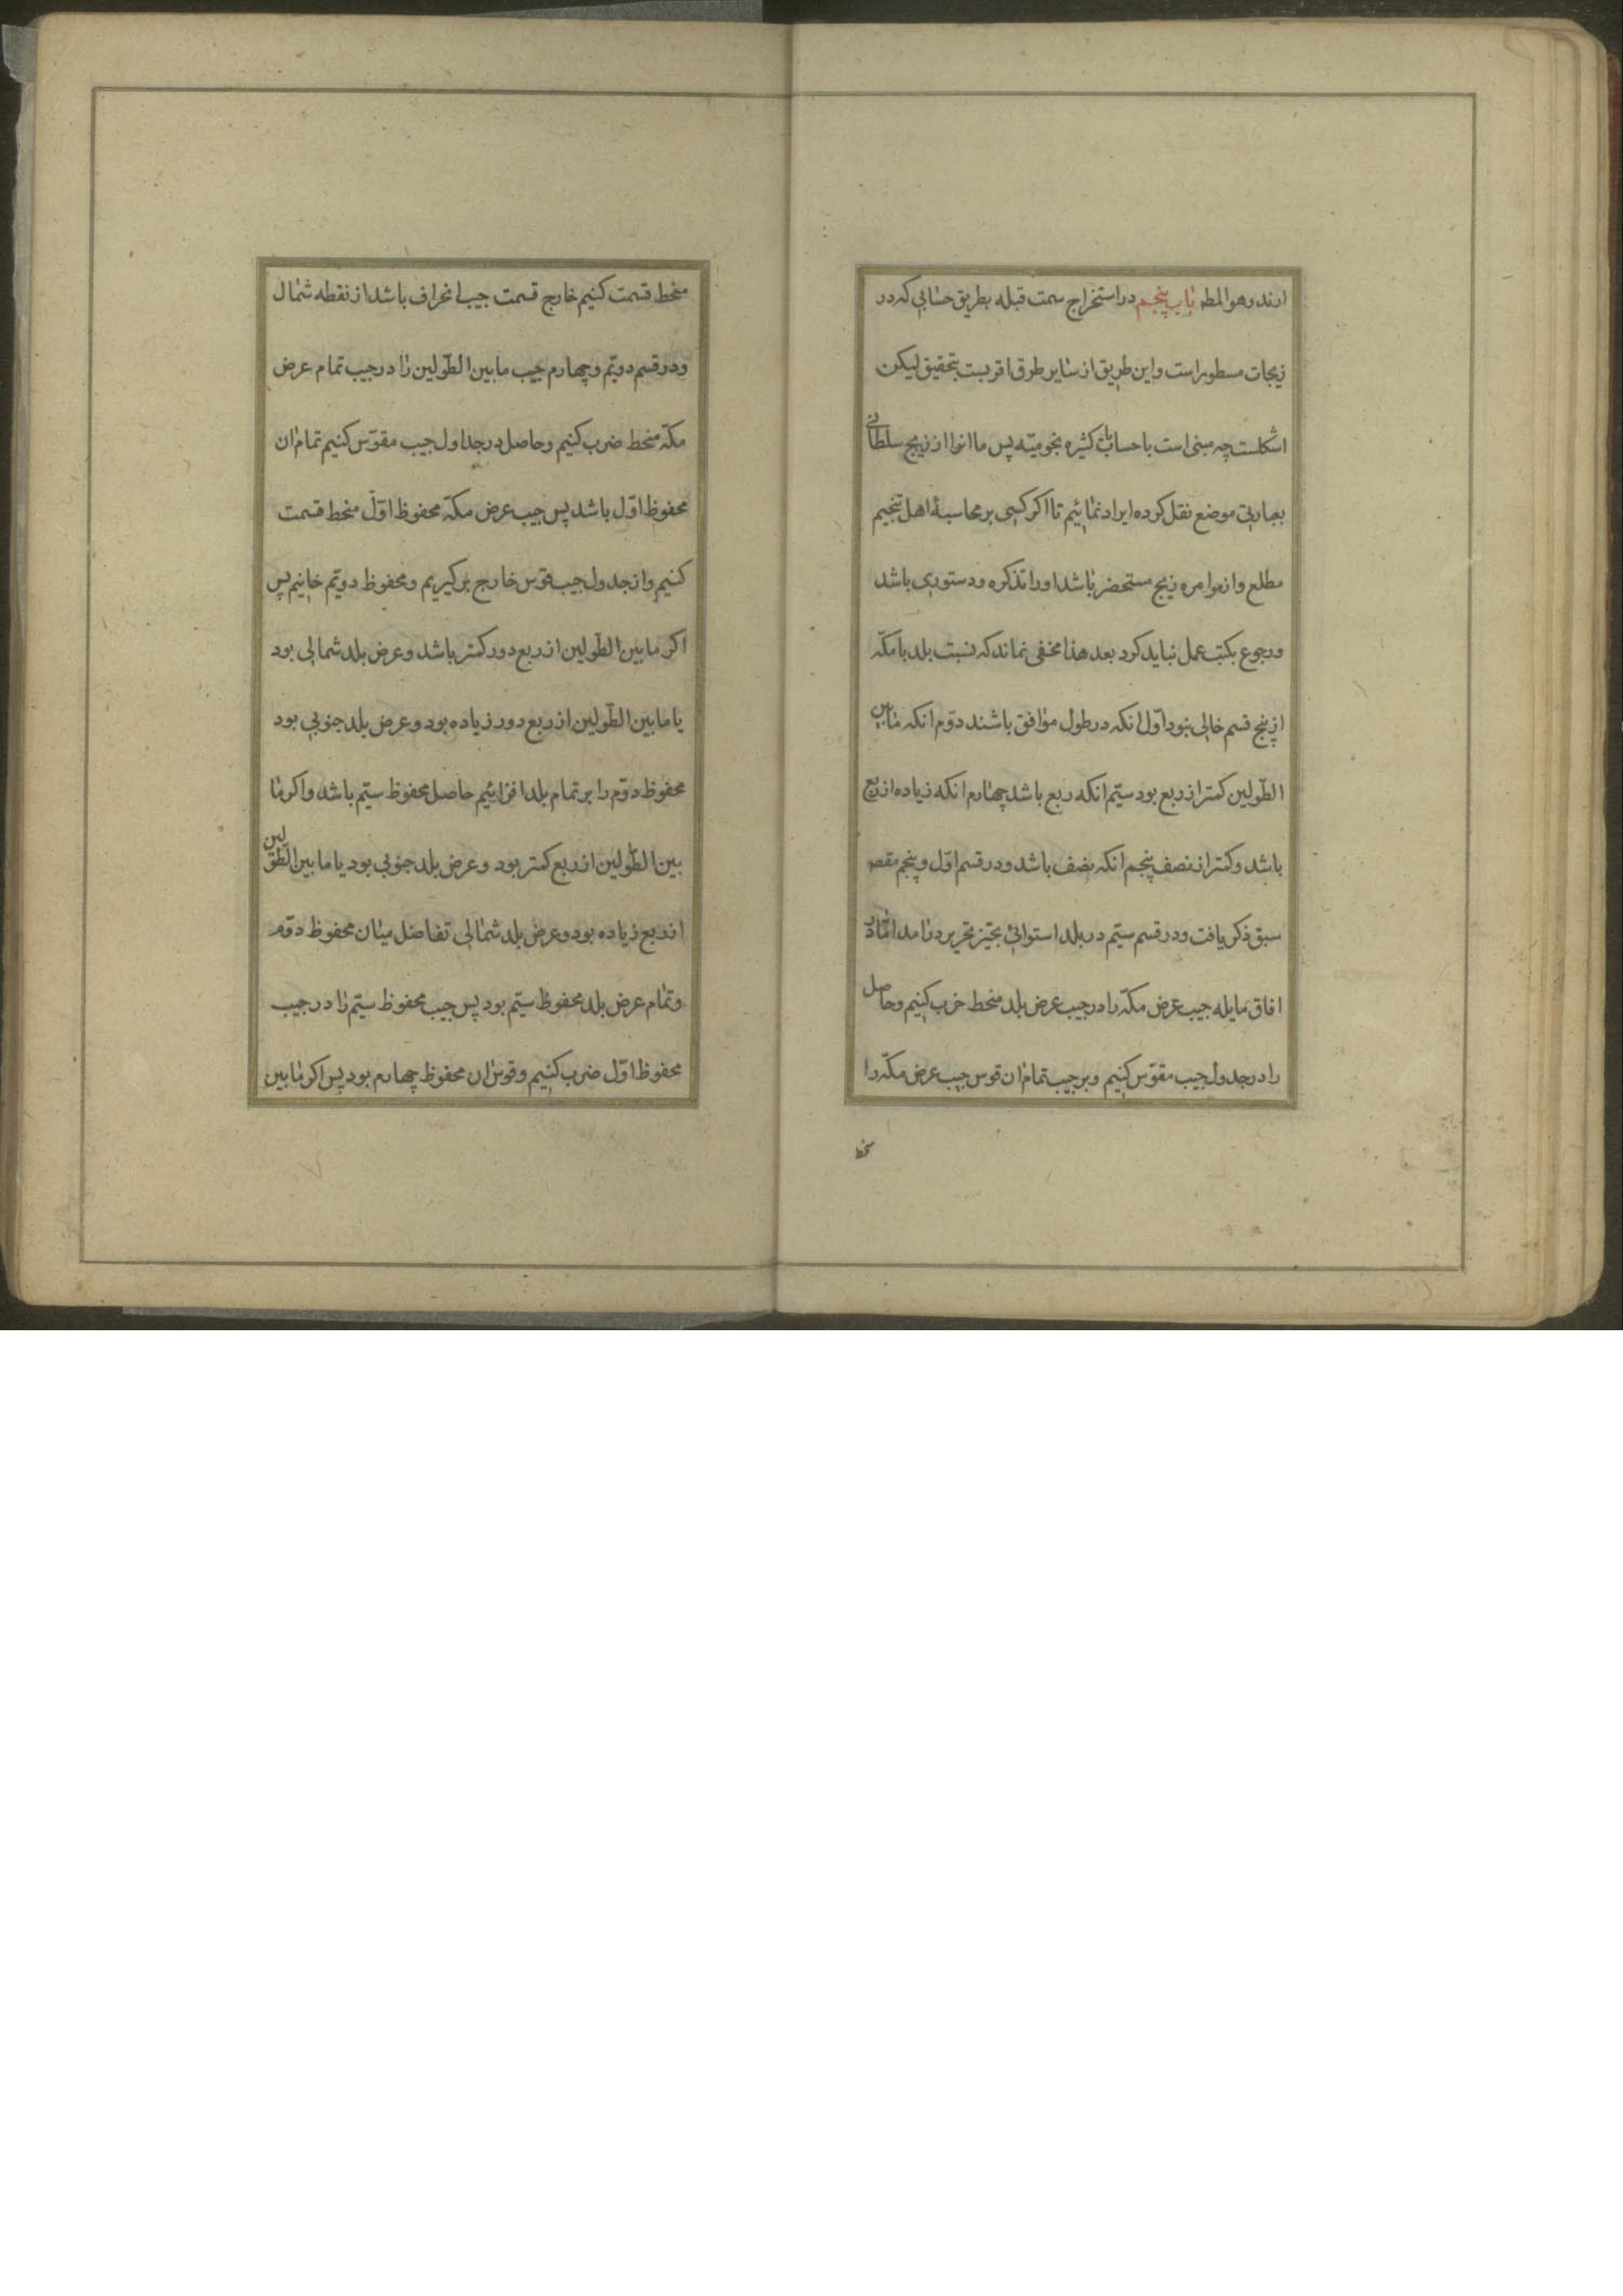 ارند و هو المط باب پنجم در استخراج سمت قبله بطریق حسابی که در
زیجات مسطور است و این طریق از سایر طرق اقربست بتحقیق لیکن
اشکلست چه مبنی است با حسابات کثیره نجومیّه پس ما انرا از زیج سلطانی
بعبارتی موضع نقل کرده ایراد نمائیم تا اکر کسی بر محاسبهٔ اهل تنجیم
مطلع و از اوامره زیج مستحضر باشد او را تذکره و دستوری باشد
و رجوع بکتب عمل نباید کرد بعد هذا مخفی نماند که نسبت بلد با مکّه
از پنج قسم خالی نبود اوّل انکه در طول موافق باشند دوّم انکه مابین
الطّولین کمتر از ربع بود سیّم انکه ربع باشد چهارم انکه زیاده از ربع
باشد و کمتر از نصف پنجم انکه نصف باشد و در قسم اوّل و پنجم مقصد
سبق ذکر یافت و در قسم سیّم در بلد استوائی بحیّز تحریر درامد امّا در
افاق مایله جیب عرض مکّه را در جیب عرض بلد منحط ضرب کنیم و حاصل
را در جدول جیب مقوّس کنیم و بر جیب تمام ان قوس جیب عرض مکّه را
منحط
منحط قسمت کنیم خارج قسمت جیب انحراف باشد از نقطه شمال
و در قسم دویّم و چهارم جیب ما بین الطّولین را در جیب تمام عرض
مکّه منحط ضرب کنیم و حاصل در جداول جیب مقوّس کنیم تمام ان
محفوظ اوّل باشد پس جیب عرض مکّه محفوظ اوّل منحط قسمت
کنیم و از جدول جیب قوس خارج برکیریم و محفوظ دویّم خوانیم پس
اکر ما بین الطّولین از ربع دور کمتر باشد و عرض بلد شمالی بود
یا ما بین الطّولین از ربع دور زیاده بود و عرض بلد جنوبی بود
محفوظ دوّم را بر تمام بلد افزائیم حاصل محفوظ سیّم باشد و اکر ما
بین الطّولین از ربع کمتر بود و عرض بلد جنوبی بود یا ما بین الطّولین
از ربع زیاده بود و عرض بلد شمالی تفاضل میان محفوظ دوّم
و تمام عرض بلد محفوظ سیّم بود پس جیب محفوظ سیّم را در جیب
محفوظ اوّل ضرب کنیم و قوس ان محفوظ چهارم بود پس اکر ما بین